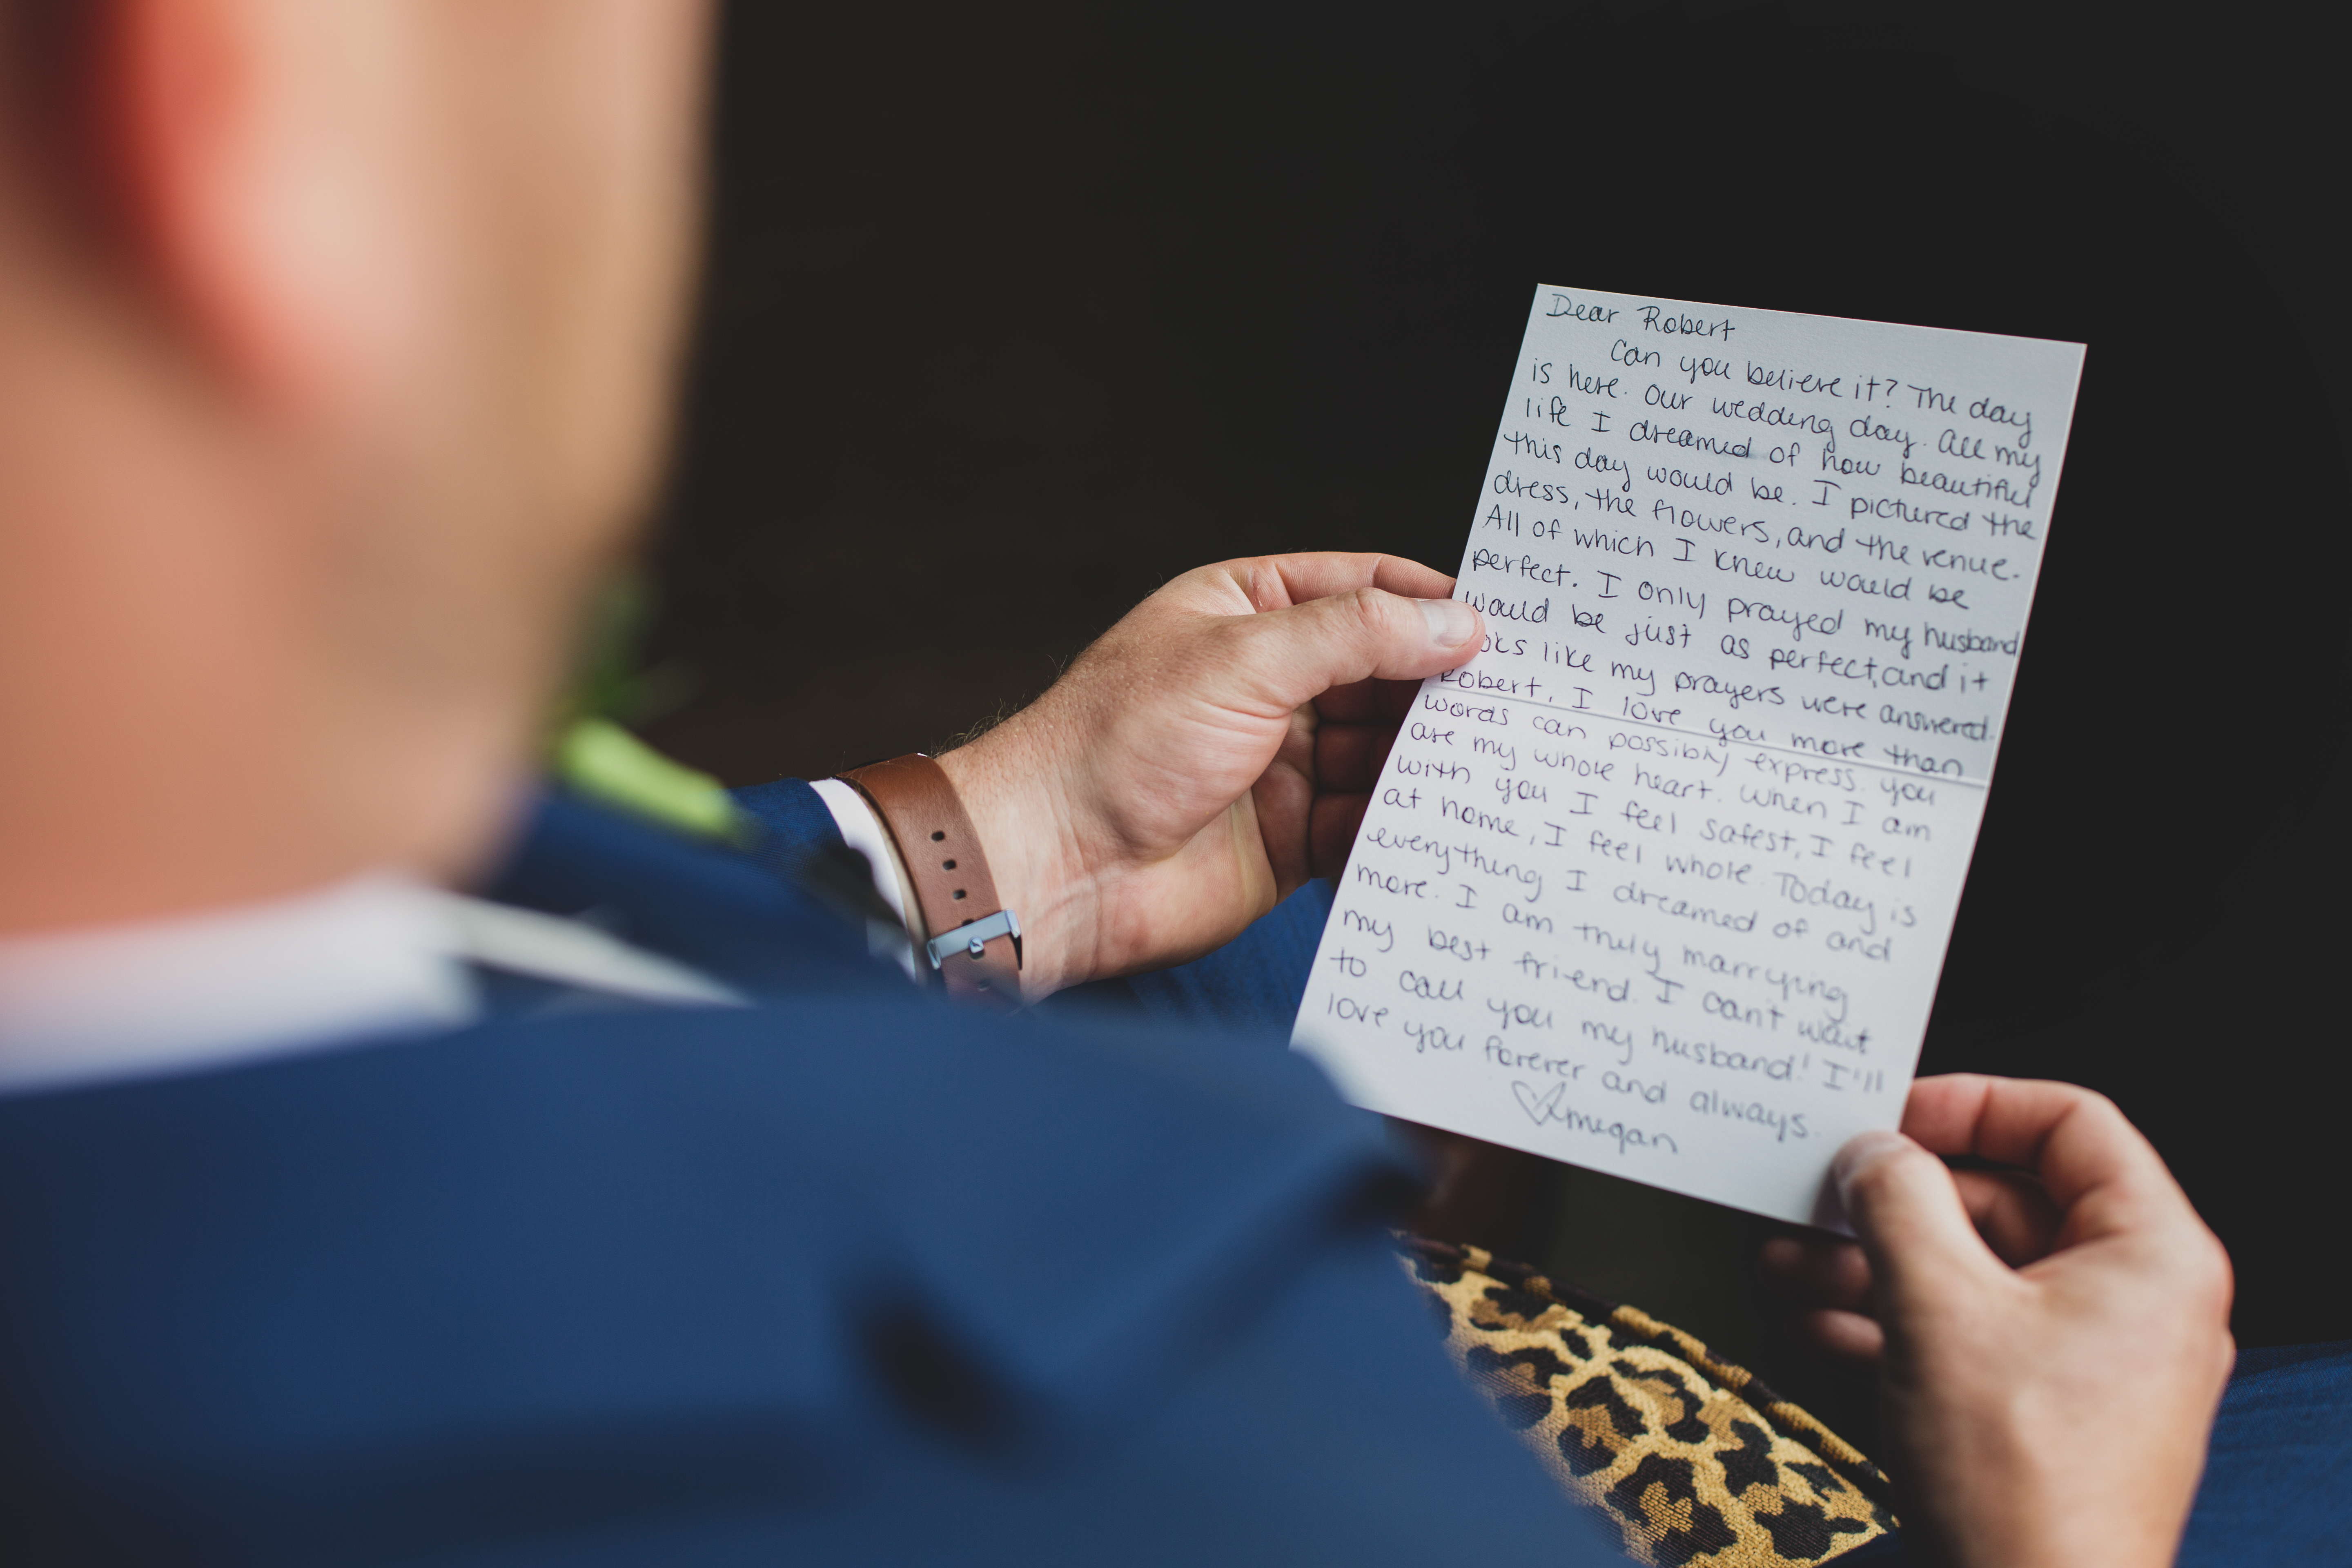 Dear Robert
Can you believe it? The day
is here. Our wedding day. All my
life I dreamed of how beautiful
this day would be. I pictured the
dress, the flowers, and the venue.
All of which I knew would be
perfect. I only prayed my husband
would be just as perfect, and it
oks like my prayers were answered.
Robert, I love you more than
words can possibly express. You
are my whole heart. When I am
with you I feel safest, I feel
at home, I feel whole. Today is
everything I dreamed of and
more. I am truly marrying
my best friend. I can't wait
to call you my husband! I'll
love you forever and always.
♡ megan